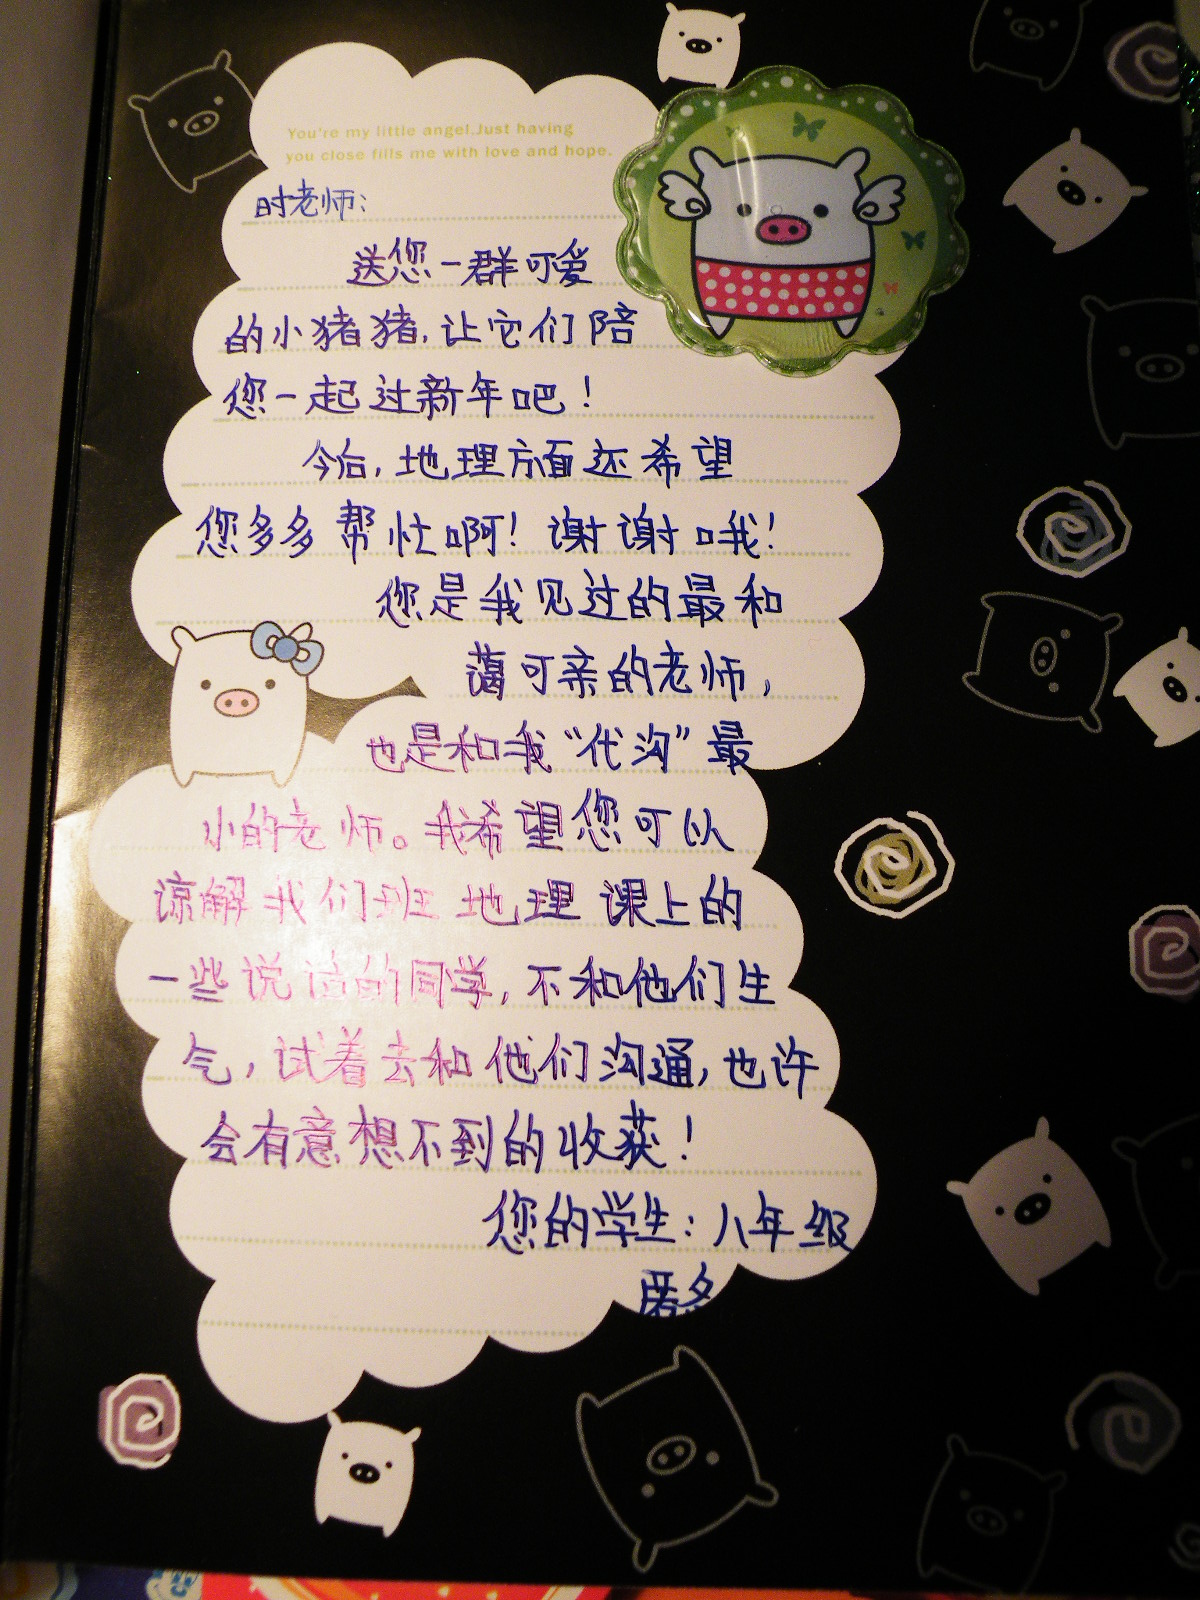 You're my little angel.Just having
you close fills me with love and hope.
时老师：
送您一群可爱
的小猪猪，让它们陪
您一起过新年吧！
今后，地理方面还希望
您多多帮忙啊！谢谢哦！
您是我见过的最和
蔼可亲的老师，
也是和我“代沟”最
小的老师。我希望您可以
谅解我们班地理课上的
一些说话的同学，不和他们生
气，试着去和他们沟通，也许
会有意想不到的收获！
您的学生：八年级
匿名